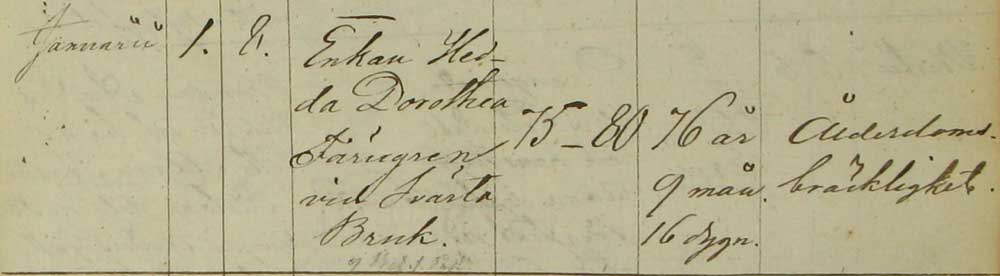 Januarii 1. 8. Enkan Hed-
da Dorothea
Färngren
vid Svarta
Bruk.
75 – 80
76 år
9 mån.
16 dygn.
Ålderdoms-
bräcklighet.